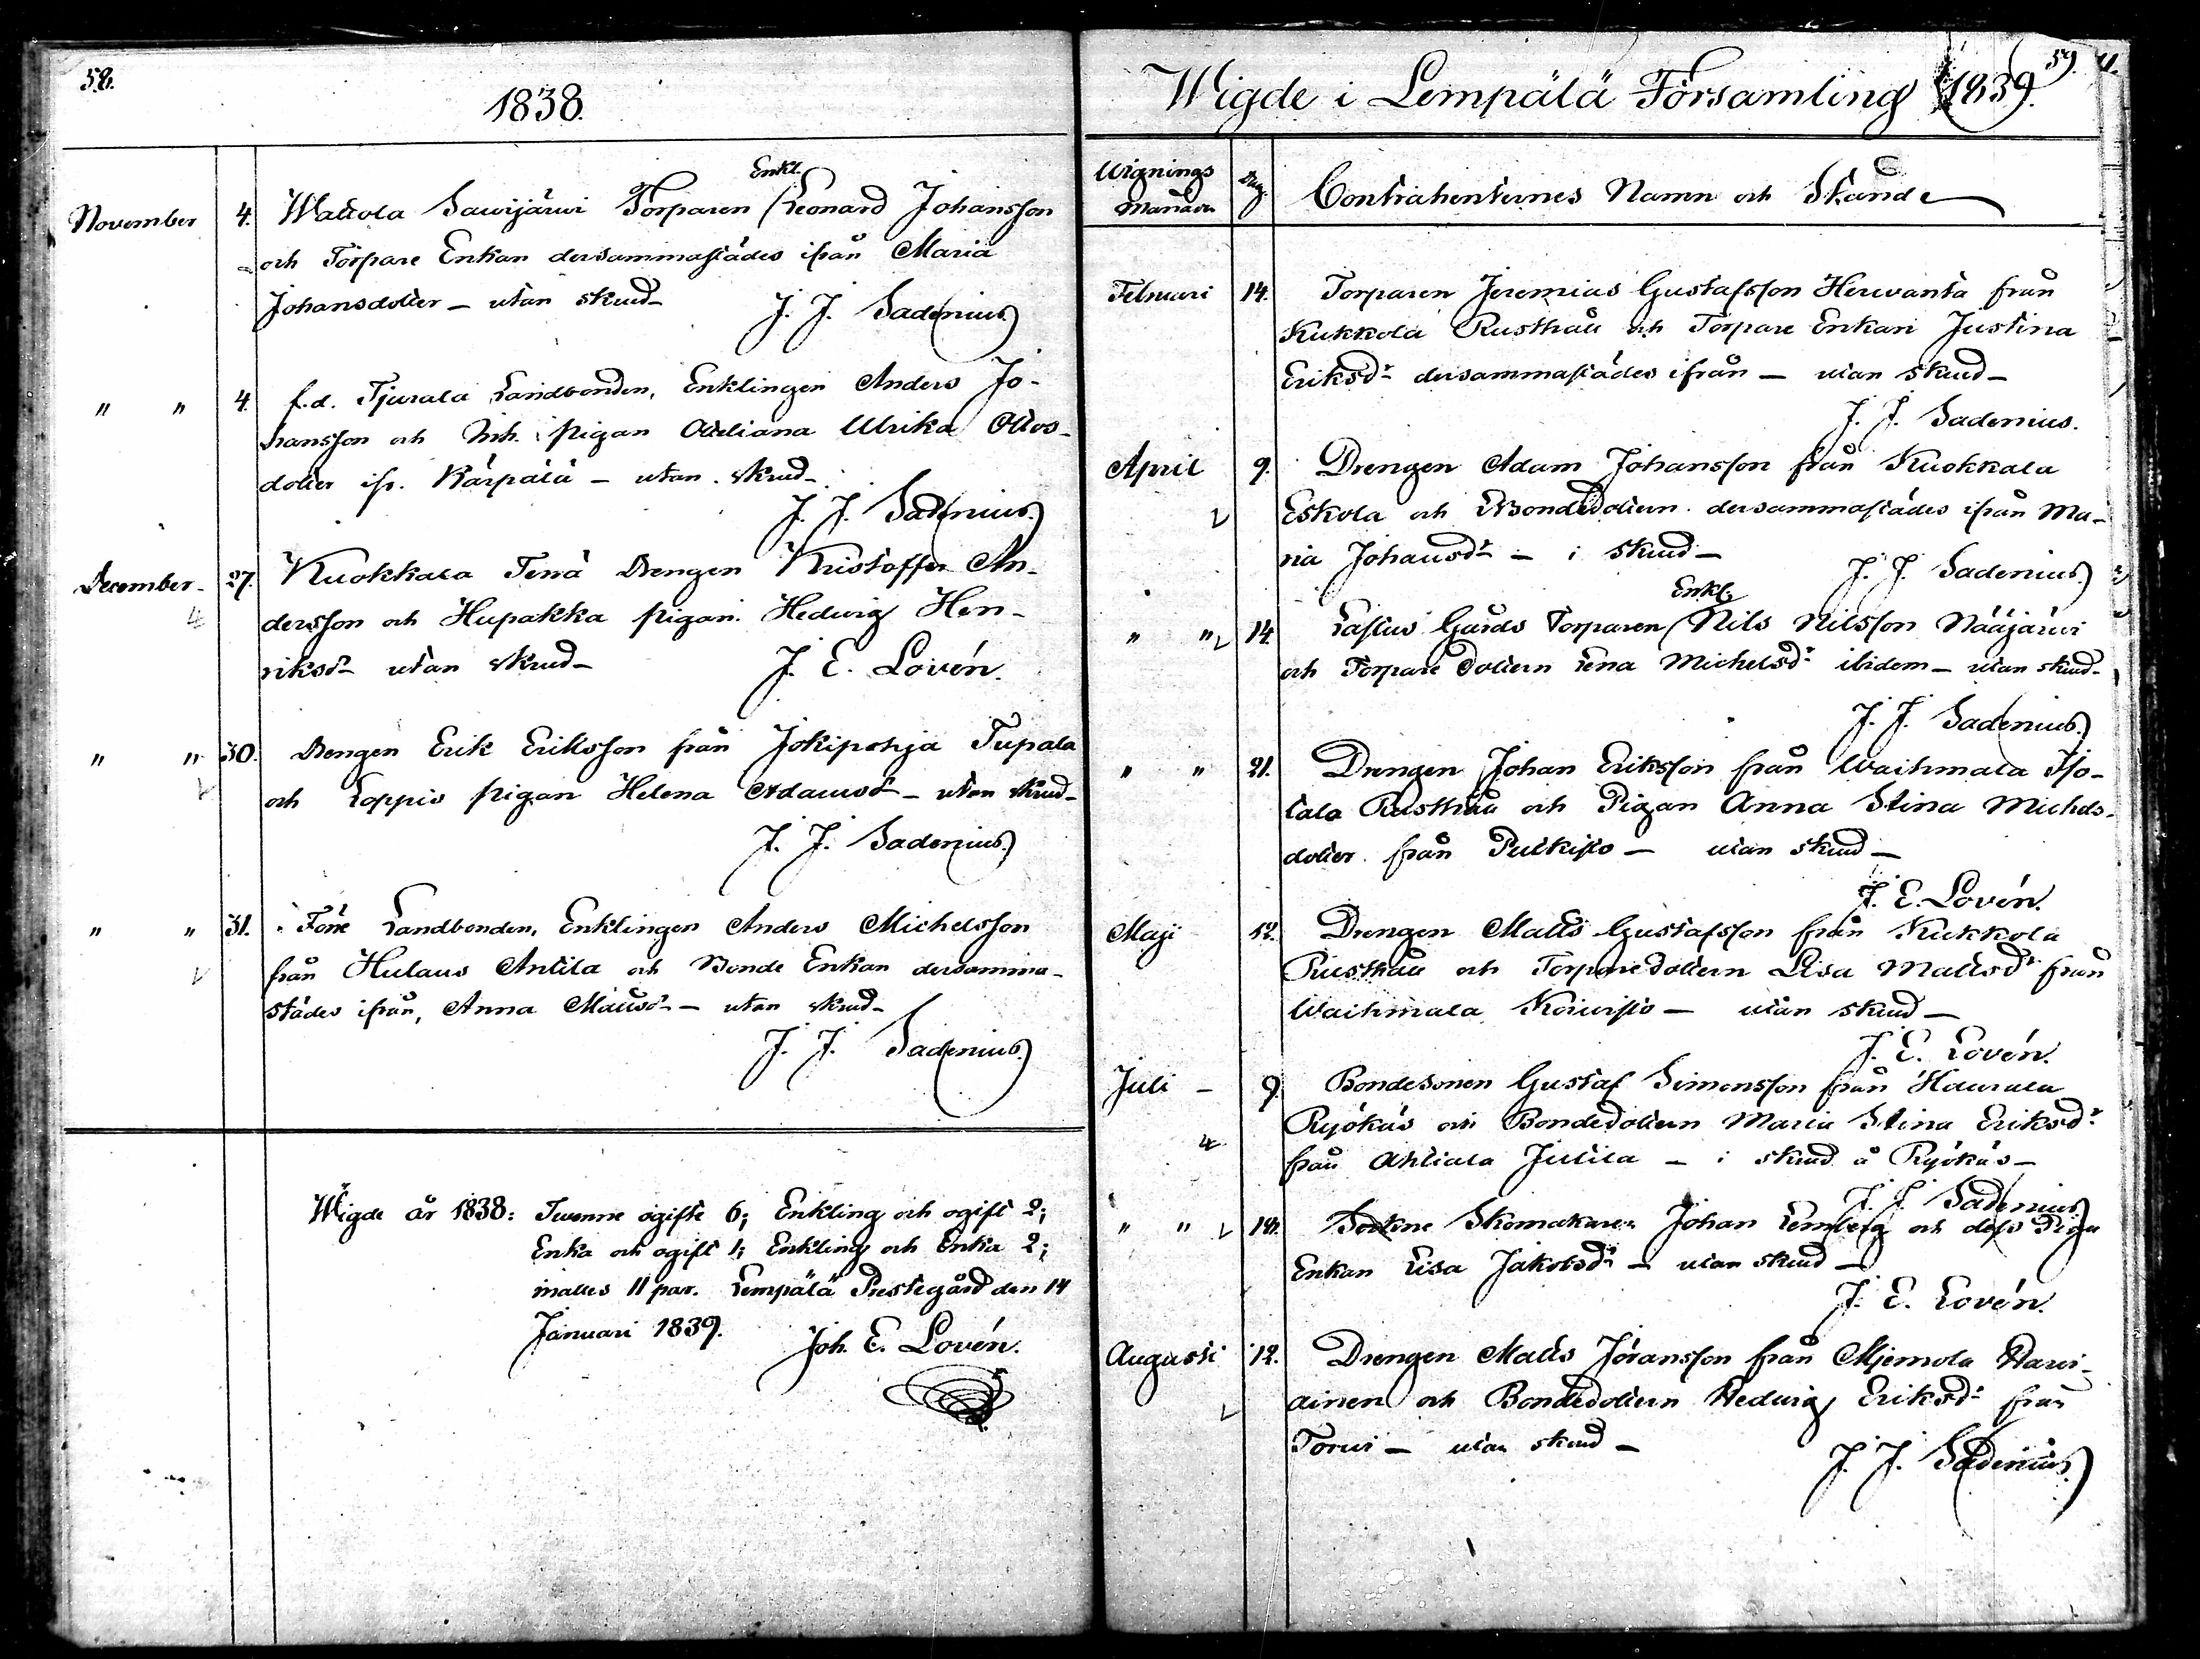 58.
1838.
Enkl.
November 4. Wattola Sawijärwi Torparen Leonard Johansson
och Torpare Enkan dersammastädes ifrån Maria
Johansdotter – utan skrud –
J. J. Sadenius.
" " 4. f.d. Tjurala Landbonden, Enklingen Anders Jo-
hansson och Inh. pigan Ulrika Ottos-
dotter ifr. Kärpälä – utan skrud –
J. J. Sadenius.
December – 27. Kuokkala Drengen Kristoffer An-
dersson och Hupakka pigan Hedwig Hen-
riksdr utan skrud –
J. E. Lovén.
" " 30. Drengen Erik Eriksson från Jokipohja Tupala
och Loppis pigan Helena Adamsdr – utan skrud –
J. J. Sadenius.
" " 31. Förre Landbonden, Enklingen Anders Michelsson
från Hulaus Antila och Bonde Enkan dersamma-
städes ifrån, Anna Mattsdr – utan skrud –
J. J. Sadenius.
Wigde år 1838: Twenne ogifte 6; Enkling och ogift 2;
Enka och ogift 1; Enkling och Enka 2;
inalles 11 par. Lempälä Prestegård den 14
Januari 1839.
Joh. E. Lovén.
59.
Wigde i Lempälä Församling 1839.
Wignings Månader Dag. Contrahenternes Namn och Stånd
Februari 14. Torparen Jeremias Gustafsson Herwanta från
Kukkola Rusthåll och Torpare Enkan Justina
Eriksdr dersammastädes ifrån – utan skrud –
J. J. Sadenius.
April 9. Drengen Adam Johansson från Kuokkala
Eskola och Bondedottern dersammastädes ifrån Ma-
ria Johansdr – i skrud –
J. J. Sadenius.
Enkl.
" " 14. Lastus Gårds Torparen Nils Nilsson Nääjärwi
och Torpare dottern Lena Michelsdr ibidem – utan skrud –
J. J. Sadenius.
" " 21. Drengen Johan Eriksson från Waihmala Iso-
tala Rusthåll och Pigan Anna Stina Michels-
dotter från Pulkisto – utan skrud –
J. E. Lovén.
Maji 12. Drengen Matts Gustafsson från Kukkola
Rusthåll och Torparedottern Lisa Mattsdr från
Waihmala Koiwisto – utan skrud –
J. E. Lovén.
Juli – 9. Bondesonen Gustaf Simonsson från Haurala
Ryökäs och Bondedottern Maria Stina Eriksdr
från Ahtiala Jutila – i skrud å Ryökäs –
J. J. Sadenius.
" " 18. Sockne Skomakaren Johan Lemberg och dess Piga
Enkan Lisa Jakobsdr – utan skrud –
J. E. Lovén.
Augusti 12. Drengen Matts Jöransson från Mjemola Harwi-
ainen och Bondedottern Hedwig Eriksdr från
Torwi – utan skrud –
J. J. Sadenius.